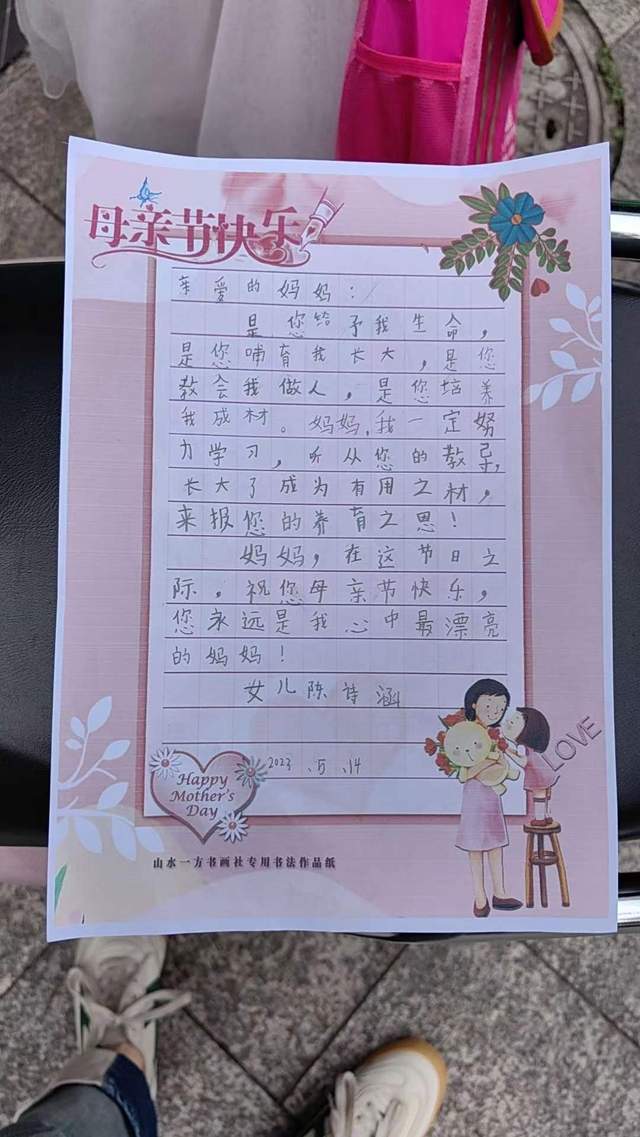 母亲节快乐
亲爱的妈妈：
是您给予我生命，
是您哺育我长大，是您
教会我做人，是您培养
我成材。妈妈，我一定努
力学习，听从您的教导，
长大了成为有用之材，
来报您的养育之恩！
妈妈，在这节日之
际，祝您母亲节快乐，
您永远是我心中最漂亮
的妈妈！
女儿陈诗涵
2023.5.14
Happy
Mother's
Day
LOVE
山水一方书画社专用书法作品纸